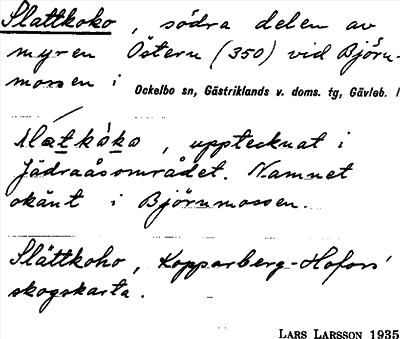 Slattkoko, södra delen av
myren Östern (350) vid Björn-
mossen i Ockelbo sn, Gästriklands v. doms. tg, Gävleb. l
kóko, upptecknat i
Jädraåsområdet. Namnet
okänt i Björnmossen.
Slättkoho, Kopparberg-Hofors'
skogskarta.
LARS LARSSON 1935